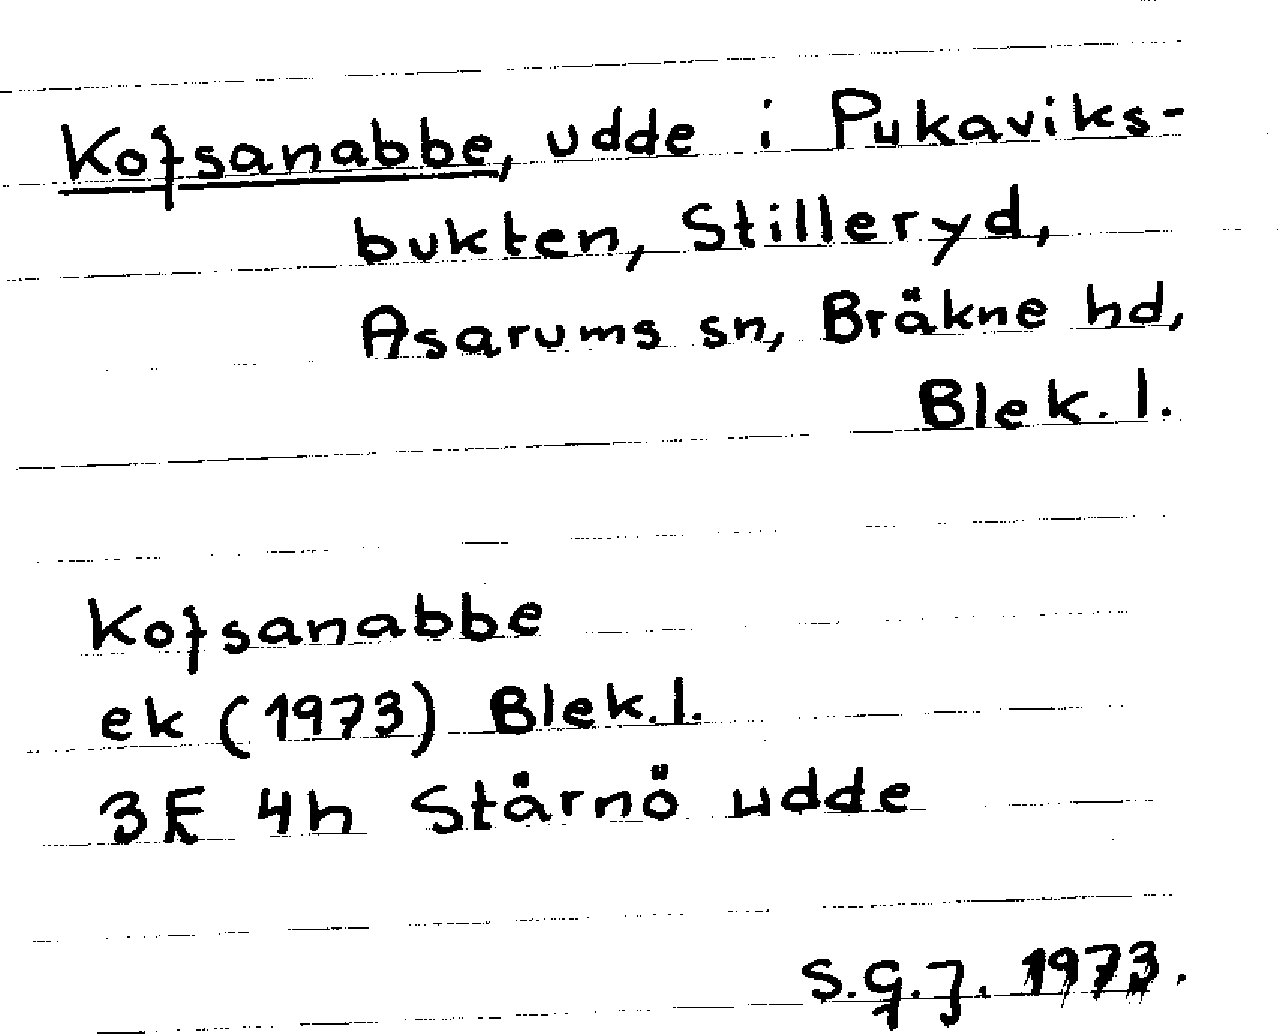 Kofsanabbe, udde i Pukaviks-
bukten, Stilleryd,
Asarums sn, Bräkne hd,
Blek. l.
Kofsanabbe
ek (1973) Blek. l.
3F 4h Stärnö udde
S.G.J. 1973.